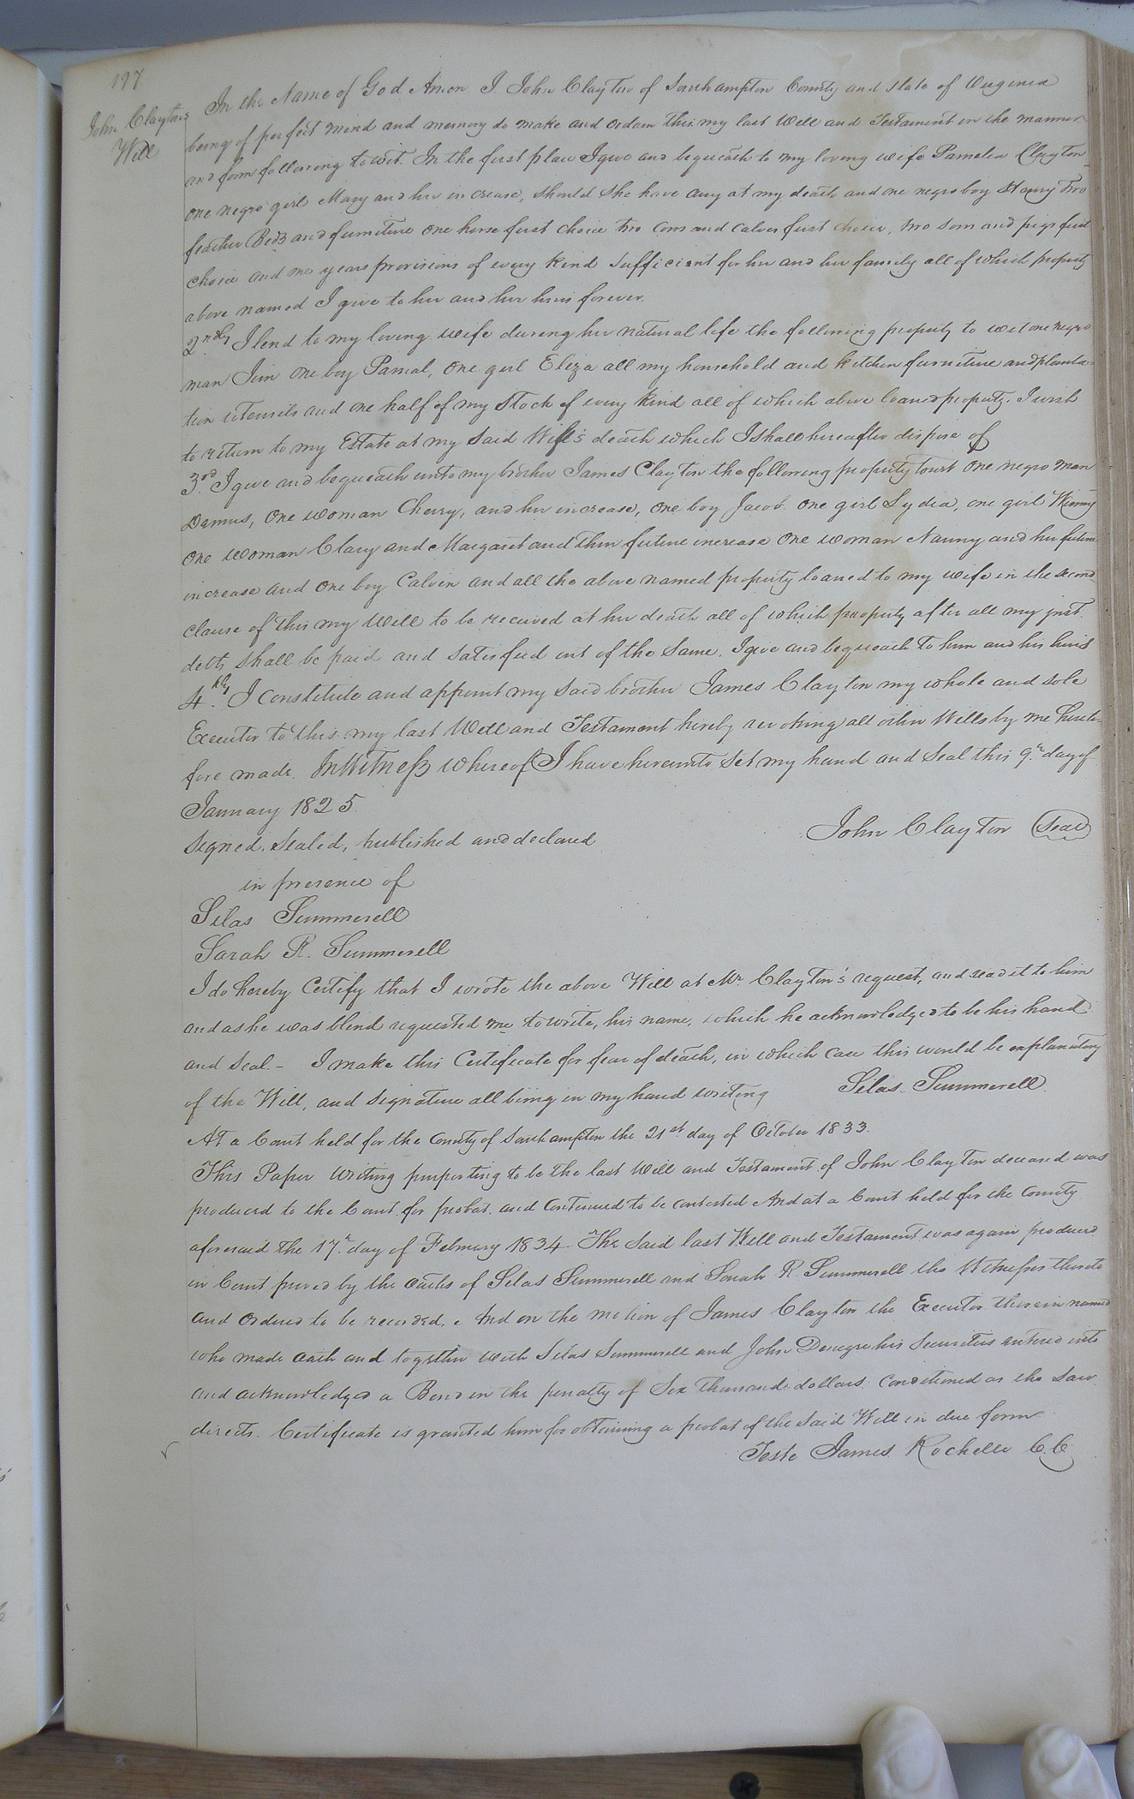 197
John Clayton's
Will
In the Name of God Amen I John Clayton of Southampton County and State of Virginia
being of perfect mind and memory do make and ordain this my last Will and Testament in the manner
and form following to wit. In the first place I give and bequeath to my loving wife Pamelia Clayton
one negro girl Mary and her increase, should she have any at my death and one negro boy Henry Two
feather Beds and furniture one horse first choice two Cows and Calves first choice, two sows and pigs first
choice and one years provisions of every kind sufficient for her and her family all of which property
above named I give to her and her heirs forever.
2ndly I lend to my loving wife during her natural life the following property to wit one negro
man Jim one boy Pascal, one girl Eliza all my household and kitchen furniture and planta-
tion utensils and one half of my Stock of every kind all of which above loaned property, I wish
to return to my Estate at my said Wife's death which I shall hereafter dispose of
3rd. I give and bequeath unto my brother James Clayton the following property to wit One negro man
Damus, One woman Cherry, and her increase, one boy Jacob one girl Lydia, one girl Winny
one woman Clary and Margaret and their future increase One woman Nanny and her future
increase and one boy Calvin and all the above named property loaned to my wife in the second
clause of this my Will to be received at her death all of which property after all my just
debts shall be paid and satisfied out of the same. I give and bequeath to him and his heirs
4thly. I constitute and appoint my said brother James Clayton my whole and sole
Executor to this my last Will and Testament hereby revoking all other Wills by me hereto-
fore made. In Witness whereof I have hereunto set my hand and Seal this 9th day of
January 1825
Signed, Sealed, published and declared
John Clayton (Seal)
in presence of
Silas Summerell
Sarah R. Summerell
I do hereby Certify that I wrote the above Will at Mr. Clayton's request, and read it to him
and as he was blind requested me to write, his name, which he acknowledged to be his hand
and Seal - I make this Certificate for fear of death, in which case this would be explanatory
of the Will, and signature all being in my hand writing Silas Summerell
At a Court held for the County of Southampton the 21st day of October 1833.
This Paper writing purporting to be the last Will and Testament of John Clayton deceased was
produced to the Court for probat. and Continued to be contested And at a Court held for the County
aforesaid the 17th day of February 1834 - The Said last Will and Testament was again produced
in Court proved by the oaths of Silas Summerell and Sarah R Summerell the Witnesses thereto
and Ordered to be recorded. And on the motion of James Clayton the Executor therein named
who made oath and together with Silas Summerell and John his Securities entered into
and acknowledged a Bond in the penalty of Six thousand dollars Conditioned as the Law
directs. Certificate is granted him for obtaining a probat of the said Will in due form
Teste James Rochelle C.C